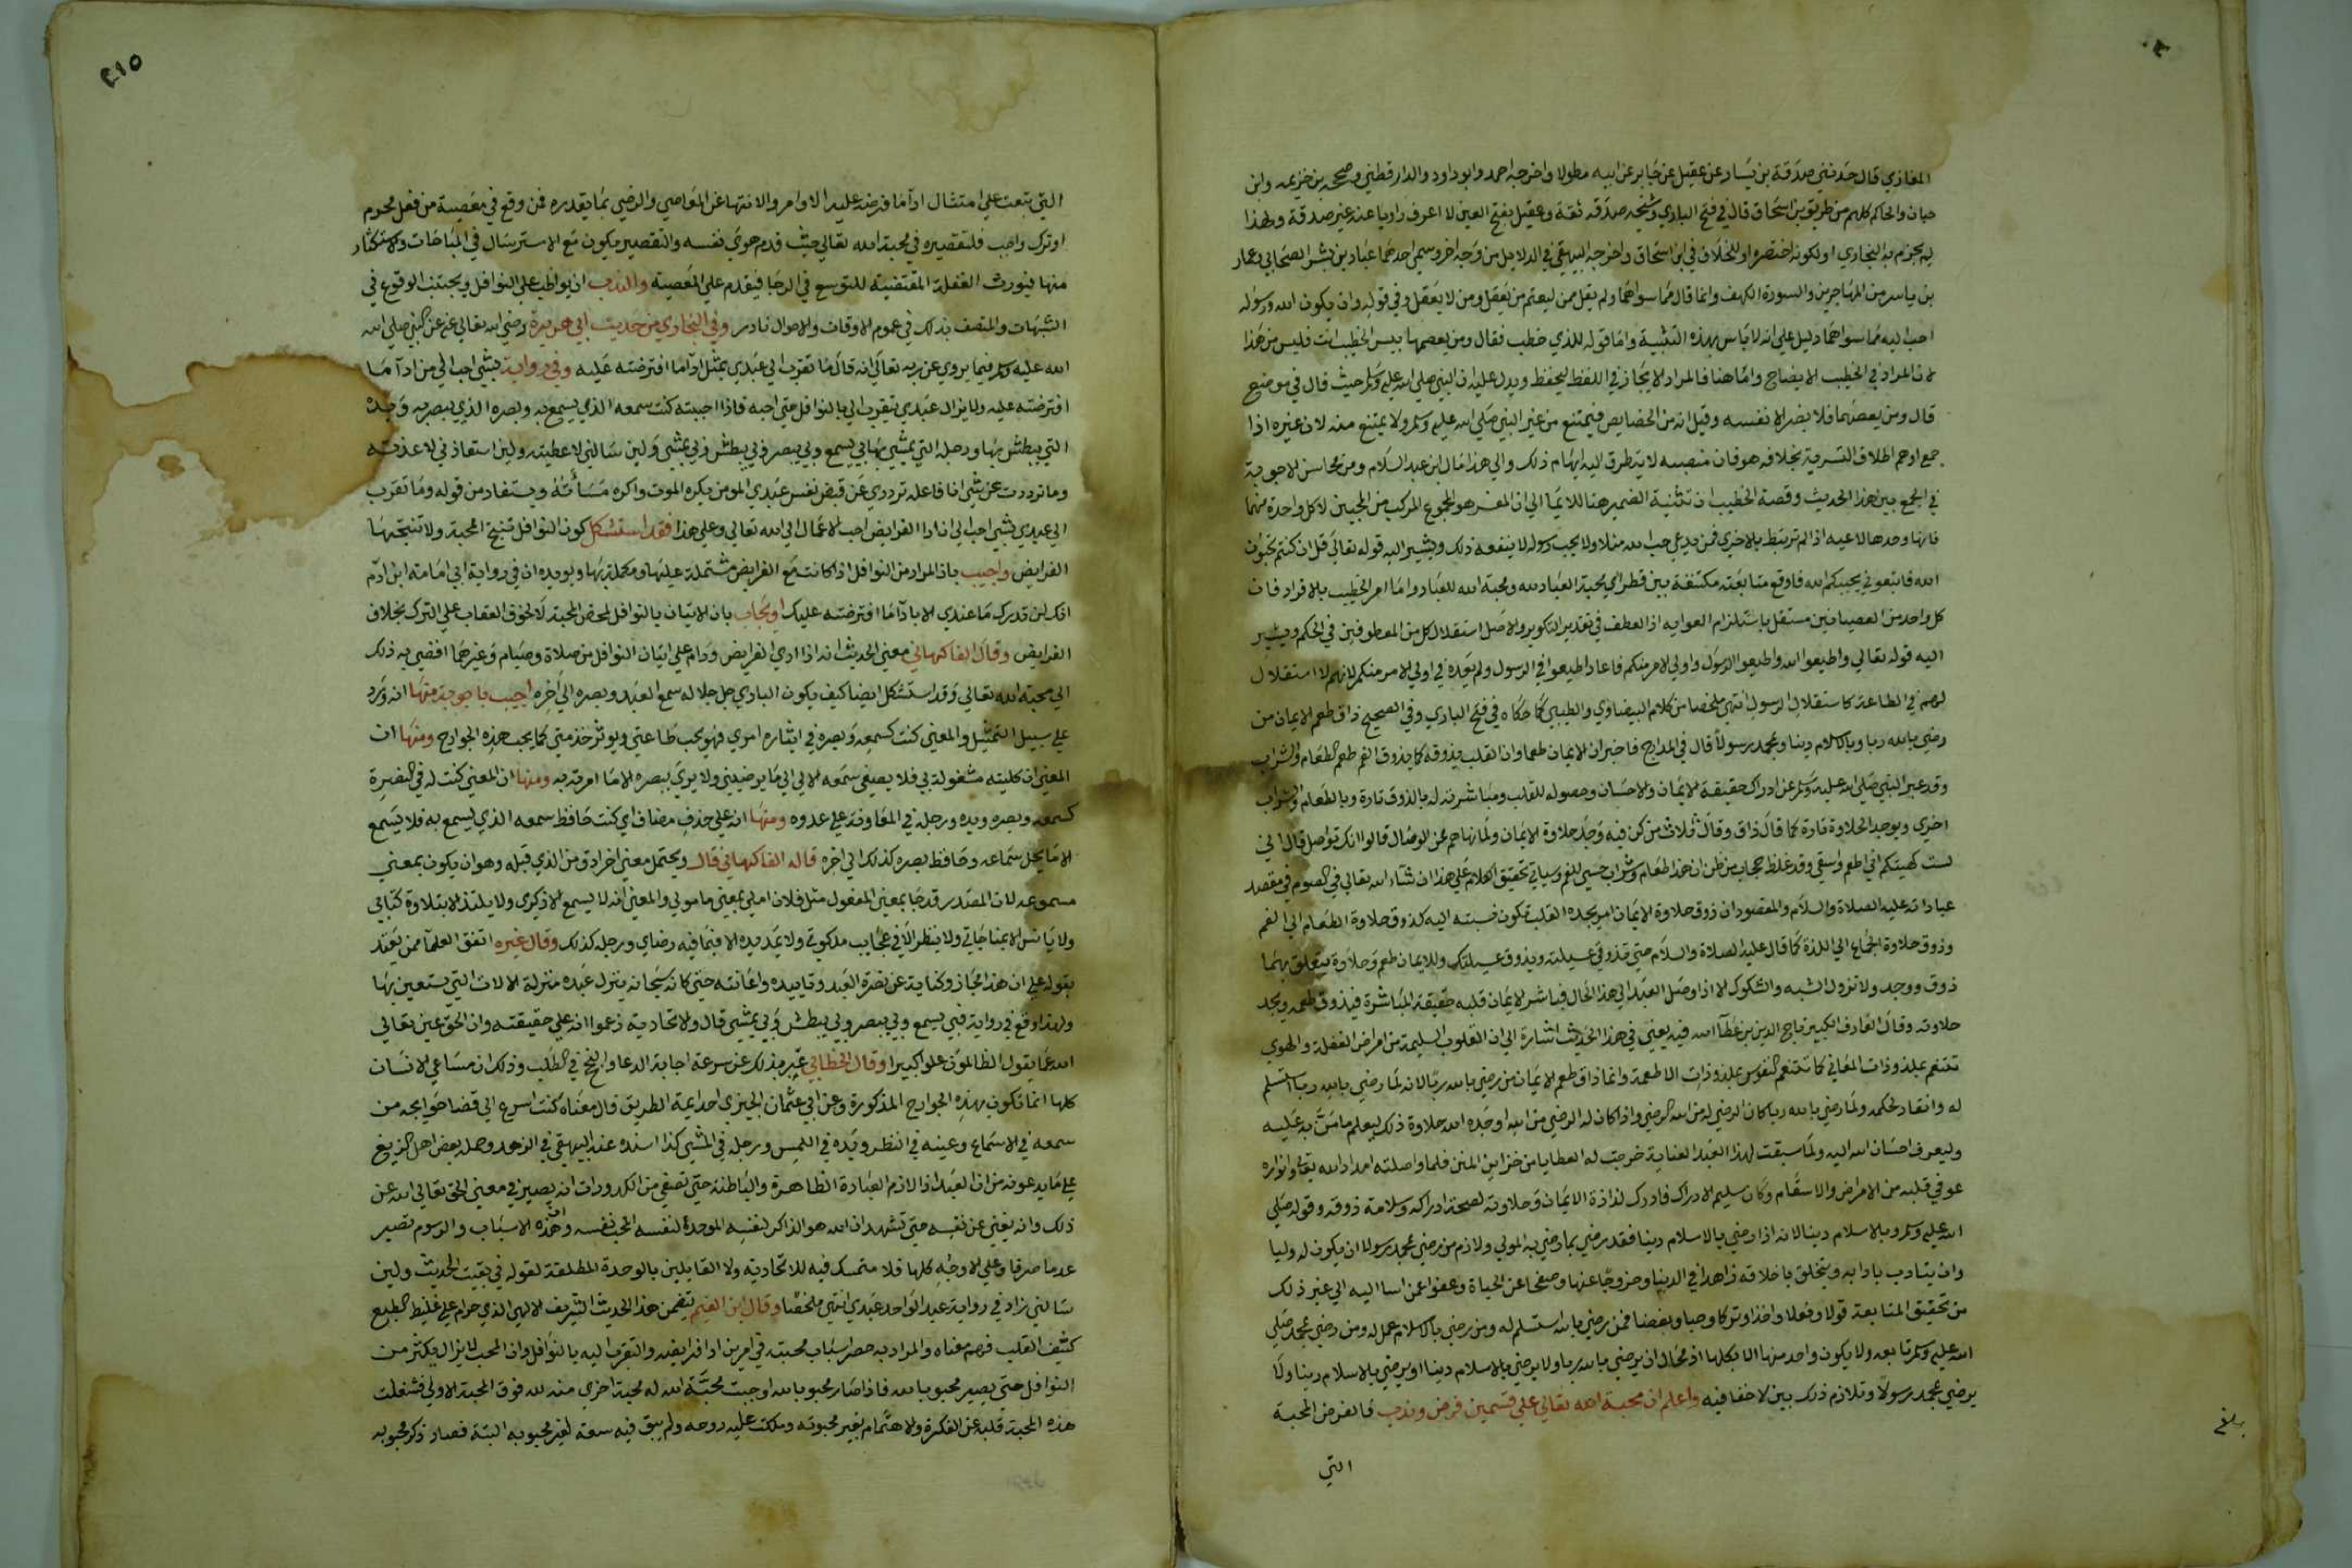 المغازي قال حدثني صدقة بن يسار عن عقيل عن جابر عن ابيه مطولا واخرجه احمد وابو داود والدارقطني وصححه بن خزيمه وابن
حبان والحاكم كلهم من طريق بن اسحاق قال في فتح الباري وشيخه صدقه ثقة وعقيل بفتح العين لا اعرف راويا عنه غير صدقة ولهذا
لم يجزم به البخاري او لكونه اختصره او للخلاف في ابن اسحاق واخرجه البيهقي في الدلايل من وجه اخر وسمي احدهما عباد بن بشر الصحابي وعمار
بن ياسر من المهاجرين والسورة الكهف وانما قال مما سواهما ولم يقل ممن ليعتم من يعقل ومن لا يعقل وفي قوله وان يكون الله ورسوله
احب اليه مما سواهما دليل علي انه لا باس بهذه التثنية واما قوله للذي خطب فقال ومن يعصهما بيس الخطيب انت فليس من هذا
لان المراد في الخطب الايضاح واما هنا فالمراد الايجاز في اللفظ ليحفظ ويدل عليه ان النبي صلي الله عليه وسلم حيث قال في موضع
قال ومن يعصهما فلا يضر الا نفسه وقيل انه من الخصايص فيمتنع من غير النبي صلي الله عليه وسلم ولا يمتنع منه لان غيره اذا
جمع اوهم اطلاق التسوية بخلافه هو فان منصبه لا يتطرق اليه ايهام ذلك والي هذا مال ابن عبد السلام ومن محاسن الاجوبة
في الجمع بين هذا الحديث وقصة الخطيب ان تثنية الضمير هنا للايما الي ان المعتبر هو المجموع المركب من المحبتين لا كل واحدة منهما
فانها وحدها لاغيه اذا لم ترتبط بالاخري فمن يدعي حب الله مثلا ولا يحب رسوله لا ينفعه ذلك ويشير اليه قوله تعالي قل ان كنتم تحبون
الله فاتبعوني يحببكم الله فاوقع متابعته مكتنفة بين قطري محبة العباد لله ومحبة الله للعباد واما امر الخطيب بالافراد فان
كل واحد من العصيانين مستقل باستلزام الغوايه اذ العطف في تقدير التكرير والاصل استقلال كل من المعطوفين في الحكم ويشير
اليه قوله تعالي واطيعوا الله واطيعوا الرسول واولي الامر منكم فاعاد اطيعوا في الرسول ولم يعده في اولي الامر منكم لانهم لا استقلال
لهم في الطاعة كاستقلال الرسول انتهي ملخصا من كلام البيضاوي والطيبي كما حكاه في فتح الباري وفي الصحيح ذاق طعم الايمان من
رضي بالله ربا وبالاسلام دينا وبمحمد رسولا قال في المدارج فاخبر ان للايمان طعما وان القلب يذوقه كما يذوق الفم طعم الطعام والشراب
وقد عبر النبي صلي الله عليه وسلم عن ادراك حقيقة الايمان والاحسان وحصوله للقلب ومباشرته له بالذوق تارة وبالطعام والشراب
اخري وبوجد الحلاوة تارة كما قال ذاق وقال ثلاث من كن فيه وجد حلاوة الايمان ولما نهاهم عن الوصال قالوا انك تواصل قال اني
لست كهيئتكم اني اطعم واسقي وقد غلظ حجاب من ظن ان هذا طعام وشراب حسي للفم وسياتي تحقيق الكلام علي هذا ان شاء الله تعالي في الصوم في مقصد
عباداته عليه الصلاة والسلام والمقصود ان ذوق حلاوة الايمان امر يجده القلب تكون نسبته اليه كذوق حلاوة الطعام الي الفم
وذوق حلاوة الجماع الي اللذة كما قال عليه الصلاة والسلام حتي تذوقي عسيلته ويذوق عسيلتك وللايمان طعم وحلاوة يتعلق بهما
ذوق ووجد ولا تزول الشبه والشكوك الا اذا وصل العبد الي هذا الحال فباشر الايمان قلبه حقيقة المباشرة فيذوق طعمه ويجد
حلاوته وقال العارف الكبير تاج الدين بن عطآ الله فيه يعني في هذا الحديث اشارة الي ان القلوب السليمة من امراض الغفلة والهوي
تتنعم بملذوذات المعاني كما تتنعم النفوس بملذوذات الاطعمة وانما ذاق طعم الايمان من رضي بالله ربا لانه لما رضي بالله ربا استسلم
له وانقاد لحكمه ولما رضي بالله ربا كان الرضي له من الله الرضي واذا كان له الرضي من الله اوجده الله حلاوة ذلك ليعلم ما من به عليه
وليعرف احسان الله اليه ولما سبقت لهذا العبد العناية خرجت له العطايا من خزاين المنن فلما واصلته امداد الله تعالي وانواره
عوفي قلبه من الامراض والاسقام وكان سليم الادراك فادرك لذاذة الايمان وحلاوته لصحة ادراكه وسلامة ذوقه وقوله صلي
الله عليه وسلم وبالاسلام دينا لانه اذا رضي بالاسلام دينا فقد رضي بما رضي به المولي ولازم من رضي بمحمد رسولا ان يكون له وليا
وان يتادب بادابه ويتخلق باخلاقه زاهدا في الدنيا وخروجا عنها وصفحا عن الحياة وعفوا عمن اسا اليه الي غير ذلك
من تحقيق المتابعة قولا وفعلا واخذا وتركا وحبا وبغضا فمن رضي بالله استسلم له ومن رضي بالاسلام عمل له ومن رضي بمحمد صلي
الله عليه وسلم تابعه ولا يكون واحد منها الا بكلها اذ محال ان يرضي بالله ربا ولا يرضي بالاسلام دينا او يرضي بالاسلام دينا ولا
يرضي بمحمد رسولا وتلازم ذلك بين لا خفا فيه واعلم ان محبة الله تعالي علي قسمين فرض وندب فالفرض المحبة
التي
بلغ
٢١٥
التي تبعث علي امتثال ادآ ما فرضه عليه الاوامر والانتها عن المعاصي والرضي بما يقدره فمن وقع في معصية من فعل محرم
او ترك واجب فلتقصيره في محبة الله تعالي حيث قدم هوي نفسه والتقصير يكون مع الاسترسال في المباحات والاستكثار
منها فيورث الغفلة المقتضية للتوسع في الرجا فيقدم علي المعصية والندب ان يواظب علي النوافل ويجتنب الوقوع في
الشبهات والمتصف بذلك في عموم الاوقات والاحوال نادر وفي البخاري من حديث ابي هريرة رضي الله تعالي عنه عن النبي صلي الله
الله عليه وسلم فيما يروي عن ربه تعالي انه قال ما تقرب الي عبدي بمثل ادآ ما افترضته عليه وفي رواية بشي احب الي من ادآ ما
افترضته عليه ولا يزال عبدي يتقرب الي بالنوافل حتي احبه فاذا احببته كنت سمعه الذي يسمع به وبصره الذي يبصر به ويده
التي يبطش بها ورجله التي يمشي بها بي يسمع وبي يبصر وبي يبطش وبي يمشي ولين سالني لاعطيته ولين استعاذني لاعذته
وما ترددت عن شي انا فاعله ترددي عن قبض نفس عبدي المومن يكره الموت واكره مسأته ويستفاد من قوله وما تقرب
الي عبدي بشي احب الي ان ادا الفرايض احب الاعمال الي الله تعالي وعلي هذا فقد استشكل كون النوافل تنتج المحبة ولا تنتجها
الفرايض واجيب بان المراد من النوافل اذا كانت مع الفرايض مشتملة عليها ومكملة لها ويويده ان في رواية ابي امامة ابن ادم
انك لن تدرك ما عندي الا بادآ ما افترضته عليك او يجاب بان الاتيان بالنوافل لمحض المحبة لا لخوف العقاب علي الترك بخلاف
الفرايض وقال الفاكهاني معني الحديث انه اذا ادي الفرايض ودام علي اتيان النوافل من صلاة وصيام وغيرهما افضي به ذلك
الي محبة الله تعالي وقد استشكل ايضا كيف يكون الباري جل جلاله سمع العبد وبصره الي اخره اجيب باجوبة منها انه ورد
علي سبيل التمثيل والمعني كنت كسمعه وبصره في ايثاره امري فهو يحب طاعتي ويوثر خدمتي كما يحب هذه الجوارح ومنها ان
المعني ان كليته مشغولة بي فلا يصغي سمعه الا الي ما يرضيني ولا يري ببصره الا ما امرته به ومنها ان المعني كنت له في النصرة
كسمعه وبصره ويده ورجله في المعاونة علي عدوه ومنها انه علي حذف مضاف اي كنت حافظ سمعه الذي يسمع به فلا يسمع
الا ما يحل سماعه وحافظ بصره كذلك الي اخره قاله الفاكهاني قال ويحتمل معني اخر ادق من الذي قبله وهو ان يكون بمعني
مسموعه لان المصدر قد جا بمعني المفعول مثل فلان املي بمعني مامولي والمعني انه لا يسمع الا ذكري ولا يلتذ الا بتلاوة كتابي
ولا يانس الا بمناجاتي ولا ينظر الا في عجايب ملكوتي ولا يمد يده الا فيما فيه رضاي ورجله كذلك وقال غيره اتفق العلمآ ممن يعتد
بقوله علي ان هذا مجاز وكناية عن نصرة العبد وتاييده واعانته حتي كانه سبحانه ينزل عبده منزلة الالات التي يستعين بها
ولهذا وقع في رواية فبي يسمع وبي يبصر وبي يبطش وبي يمشي قال والاتحادية زعموا انه علي حقيقته وان الحق عين تعالي
الله عما يقول الظالمون علوا كبيرا وقال الخطابي عبر بذلك عن سرعة اجابة الدعا والنجح في الطلب وذلك ان مساعي الانسان
كلها انما تكون بهذه الجوارح المذكورة وعن ابي عثمان الجيزي احد ايمة الطريق قال معناه كنت اسرع الي قضا حوايجه من
سمعه في الاسماع وعينه في النظر ويده في اللمس ورجله في المشي كذا اسنده عنه البيهقي في الزهد وحمله بعض اهل الزيغ
علي ما يدعونه من ان العبد اذا لازم العبادة الظاهرة والباطنة حتي تصفي من الكدورات انه يصير في معني الحق تعالي الله عن
ذلك وانه يفني عن نفسه حتي تشهد ان الله هو الذاكر لنفسه الموحد لنفسه المحب لنفسه وان هذه الاسباب والرسوم تصير
عدما صرفا وعلي الاوجه كلها فلا متمسك فيه للاتحاديه ولا القايلين بالوحدة المطلقة لقوله في بقيت الحديث ولين
سالني زاد في رواية عبد الواحد عبدي انتهي ملخصا وقال ابن القيم يتضمن هذا الحديث الشريف الالهي الذي حرام علي غليظ الطبع
كثيف القلب فهم معناه والمراد به حصر اسباب محبته في امرين ادا فرايضه والتقرب اليه بالنوافل وان المحب لا يزال يكثر من
النوافل حتي يصير محبوبا لله فاذا صار محبوبا لله اوجبت محبة الله له محبة اخري منه لله فوق المحبة الاولي فشغلت
هذه المحبة قلبه عن الفكرة والاهتمام بغير محبوبه وملكت عليه روحه ولم يبق فيه سعة لغير محبوبه البتة فصار ذكر محبوبه